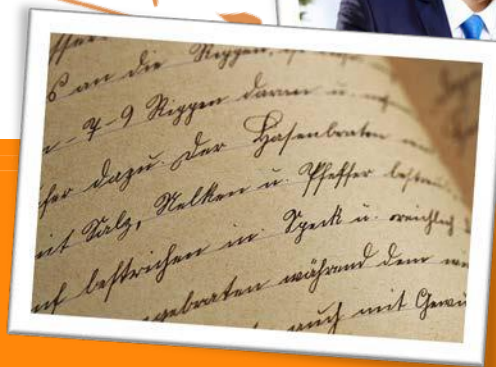 s an die Rippen,
n - 7-9 Rippen daran u.
fer dazu. Der Hasenbraten
mit Salz, Nelken u. Pfeffer bestreut
nf bestrichen in Speck u. reichlich
gebraten während dem
auch mit Gewü